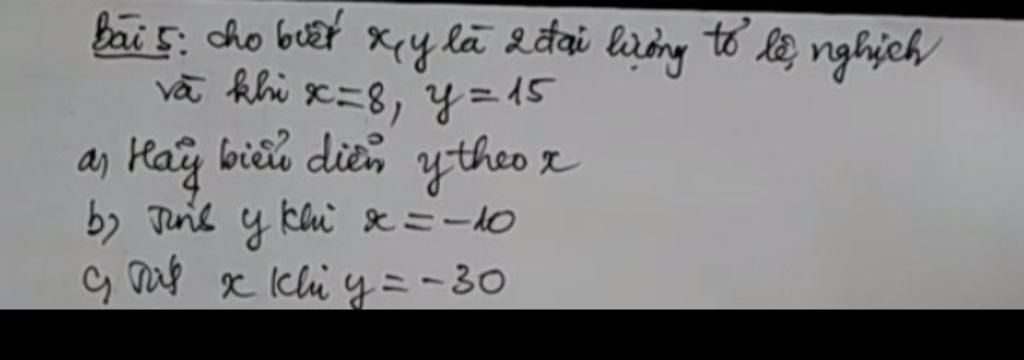 Bài 5: Cho biết x, y là 2 đại lượng tỉ lệ nghịch
và khi x=8, y=15
a) Hãy biểu diễn y theo x
b) Tính y khi x=-10
c) Tính x khi y=-30